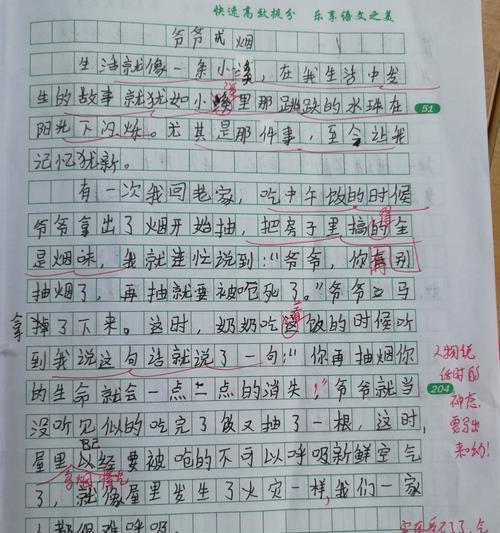 快速高效提分 乐享语文之美
爷爷戒烟
生活就像一条小溪，在我生活中发
生的故事就犹如小溪里那跳跃的水珠在
51
阳光下闪烁。尤其是那件事，至今让我
记忆犹新。
有一次我回老家，吃中午饭的时候
爷爷拿出了烟开始抽，把房子里搞的全
得
是烟味，我就连忙说到：“爷爷，你再别
抽烟了，再抽就要被呛死了。”爷爷立马
拿掉了下来。这时，奶奶吃着饭的时候听
到我说这句话就说了一句：“你再抽烟你
人物说
话时的
神态
要写出
来哟！
的生命就会一点一点的消失！”爷爷就当
204
没听见似的吃完了饭又抽了一根，这时，
屋里以经要被呛的不可以呼吸新鲜空气
已
了，就像屋里发生了火灾一样，我们一家
人都很难呼吸。